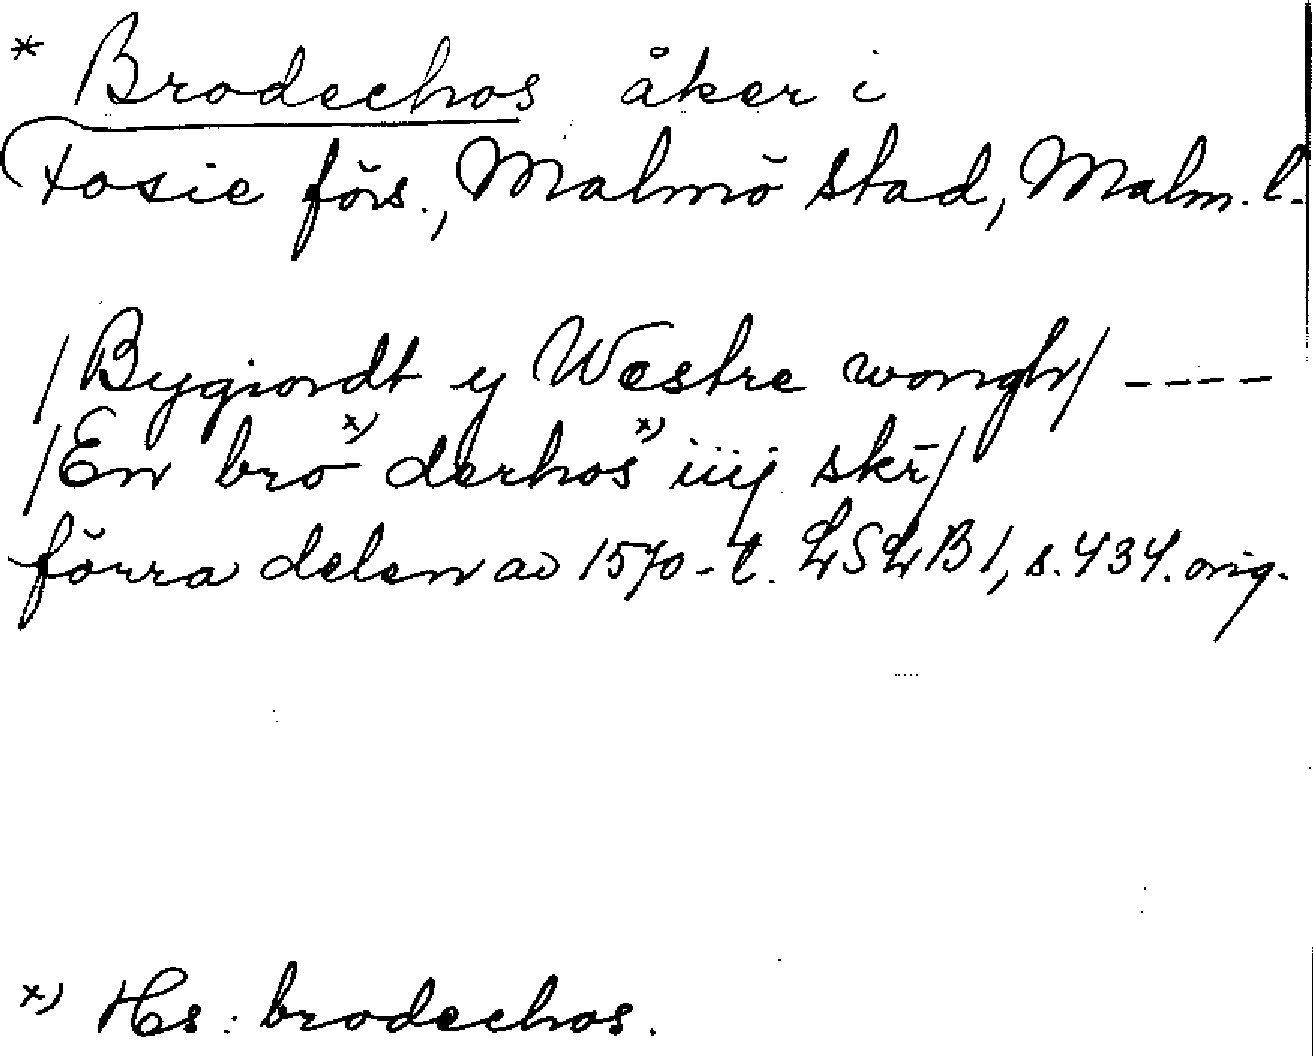 * Brodechos åker i
Fosie förs., Malmö stad, Malm. l.
/Bygiordt y Westre wongh/ ----
/En bro x) derhos x) iiij skr/
förra delen av 1570-t. LSLB 1, s. 434. orig.
x) Hs: brodechos.